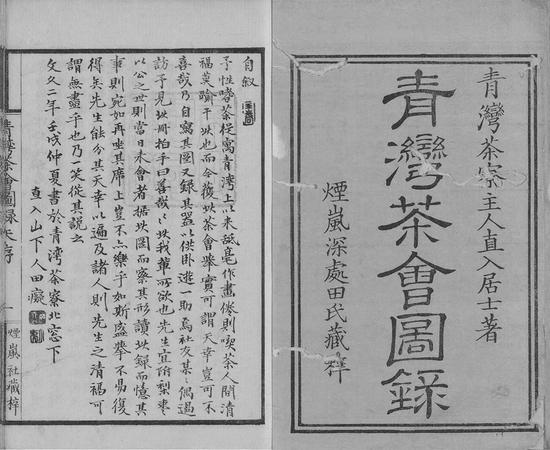 青灣茶寮主人直入居士著
青灣茶會圖錄
煙嵐深處田氏藏梓
自敘
予性嗜茶従寓青灣上以来舐毫作畫倦則喫茶人間清
福莫踰于此也而今復此茶會舉實可謂天幸豈可不
喜哉乃自寫其圖又録其器以供卧遊一助焉社友某〻偶過
訪予見此冊拍手曰善哉〻此我輩所欲也先生宜附梨棗
以公之世則當日未會者據此圖而察其形讀此録而憶其
事則宛如再坐其席上豈不亦樂乎如斯盛擧不易復
得矣先生能分其天幸以遍及諸人則先生之清福可
謂無盡乎也乃一笑従其説云
文久二年壬戌仲夏書於青湾茶寮北窓下
直入山下人田癡
青灣茶會圖録 序 一 煙嵐社藏梓